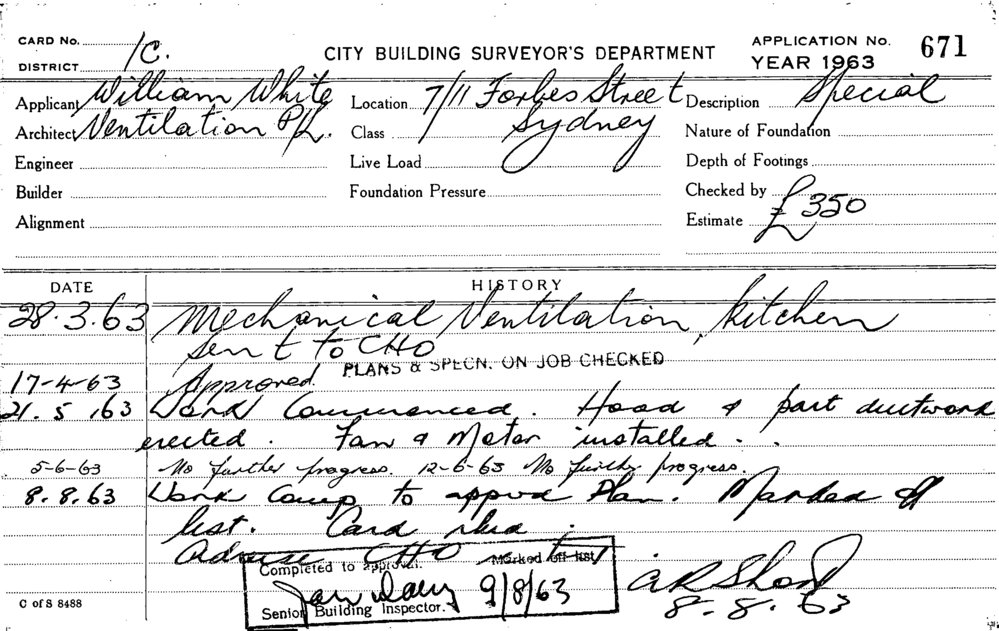 CARD No. 1C.
CITY BUILDING SURVEYOR'S DEPARTMENT
APPLICATION No. 671
DISTRICT
YEAR 1963
Applicant William White
Location 7/11 Forbes Street
Description Special
Architect Ventilation P/L.
Class Sydney
Nature of Foundation
Engineer
Live Load
Depth of Footings
Builder
Foundation Pressure
Checked by
Alignment
Estimate £350
DATE HISTORY
28.3.63 Mechanical Ventilation, kitchen
Sent to CHO
PLANS & SPECN. ON JOB CHECKED
17-4-63 Approved.
21.5.63 Work Commenced. Hood & part ductwork
erected. Fan & Motor installed.
5-6-63 No further progress. 12-6-63 No further progress.
8.8.63 Work Comp to approv Plan. Marked off
list. Card
Advise CHO
Completed to approval. Marked off list
9/8/63
Senior Building Inspector.
8.8.63
C of S 8488